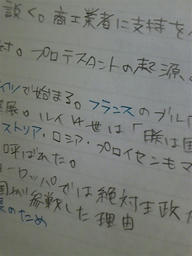 説く。商工業者に支持を
対。プロテスタントの起源。
イツで始まる。フランスのブル
発展。ルイ14世は「朕は国
ストリア・ロシア・プロイセンもマ
呼ばれた。
ーロッパでは絶対王政が
国が参戦した理由
のため